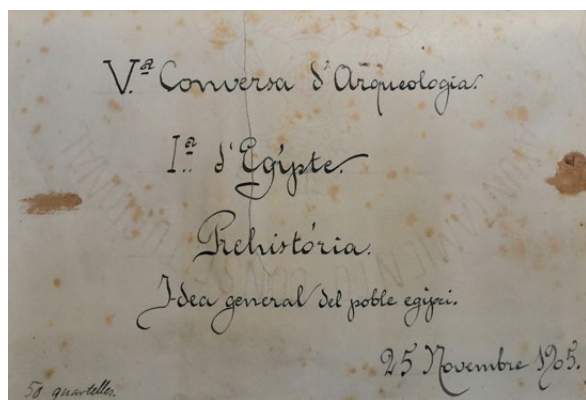 V.ª Conversa d'Arqueologia.
I.ª d'Egipte.
Prehistória.
Idea general del poble egipci.
25 Novembre 1905.
50 quartelles.